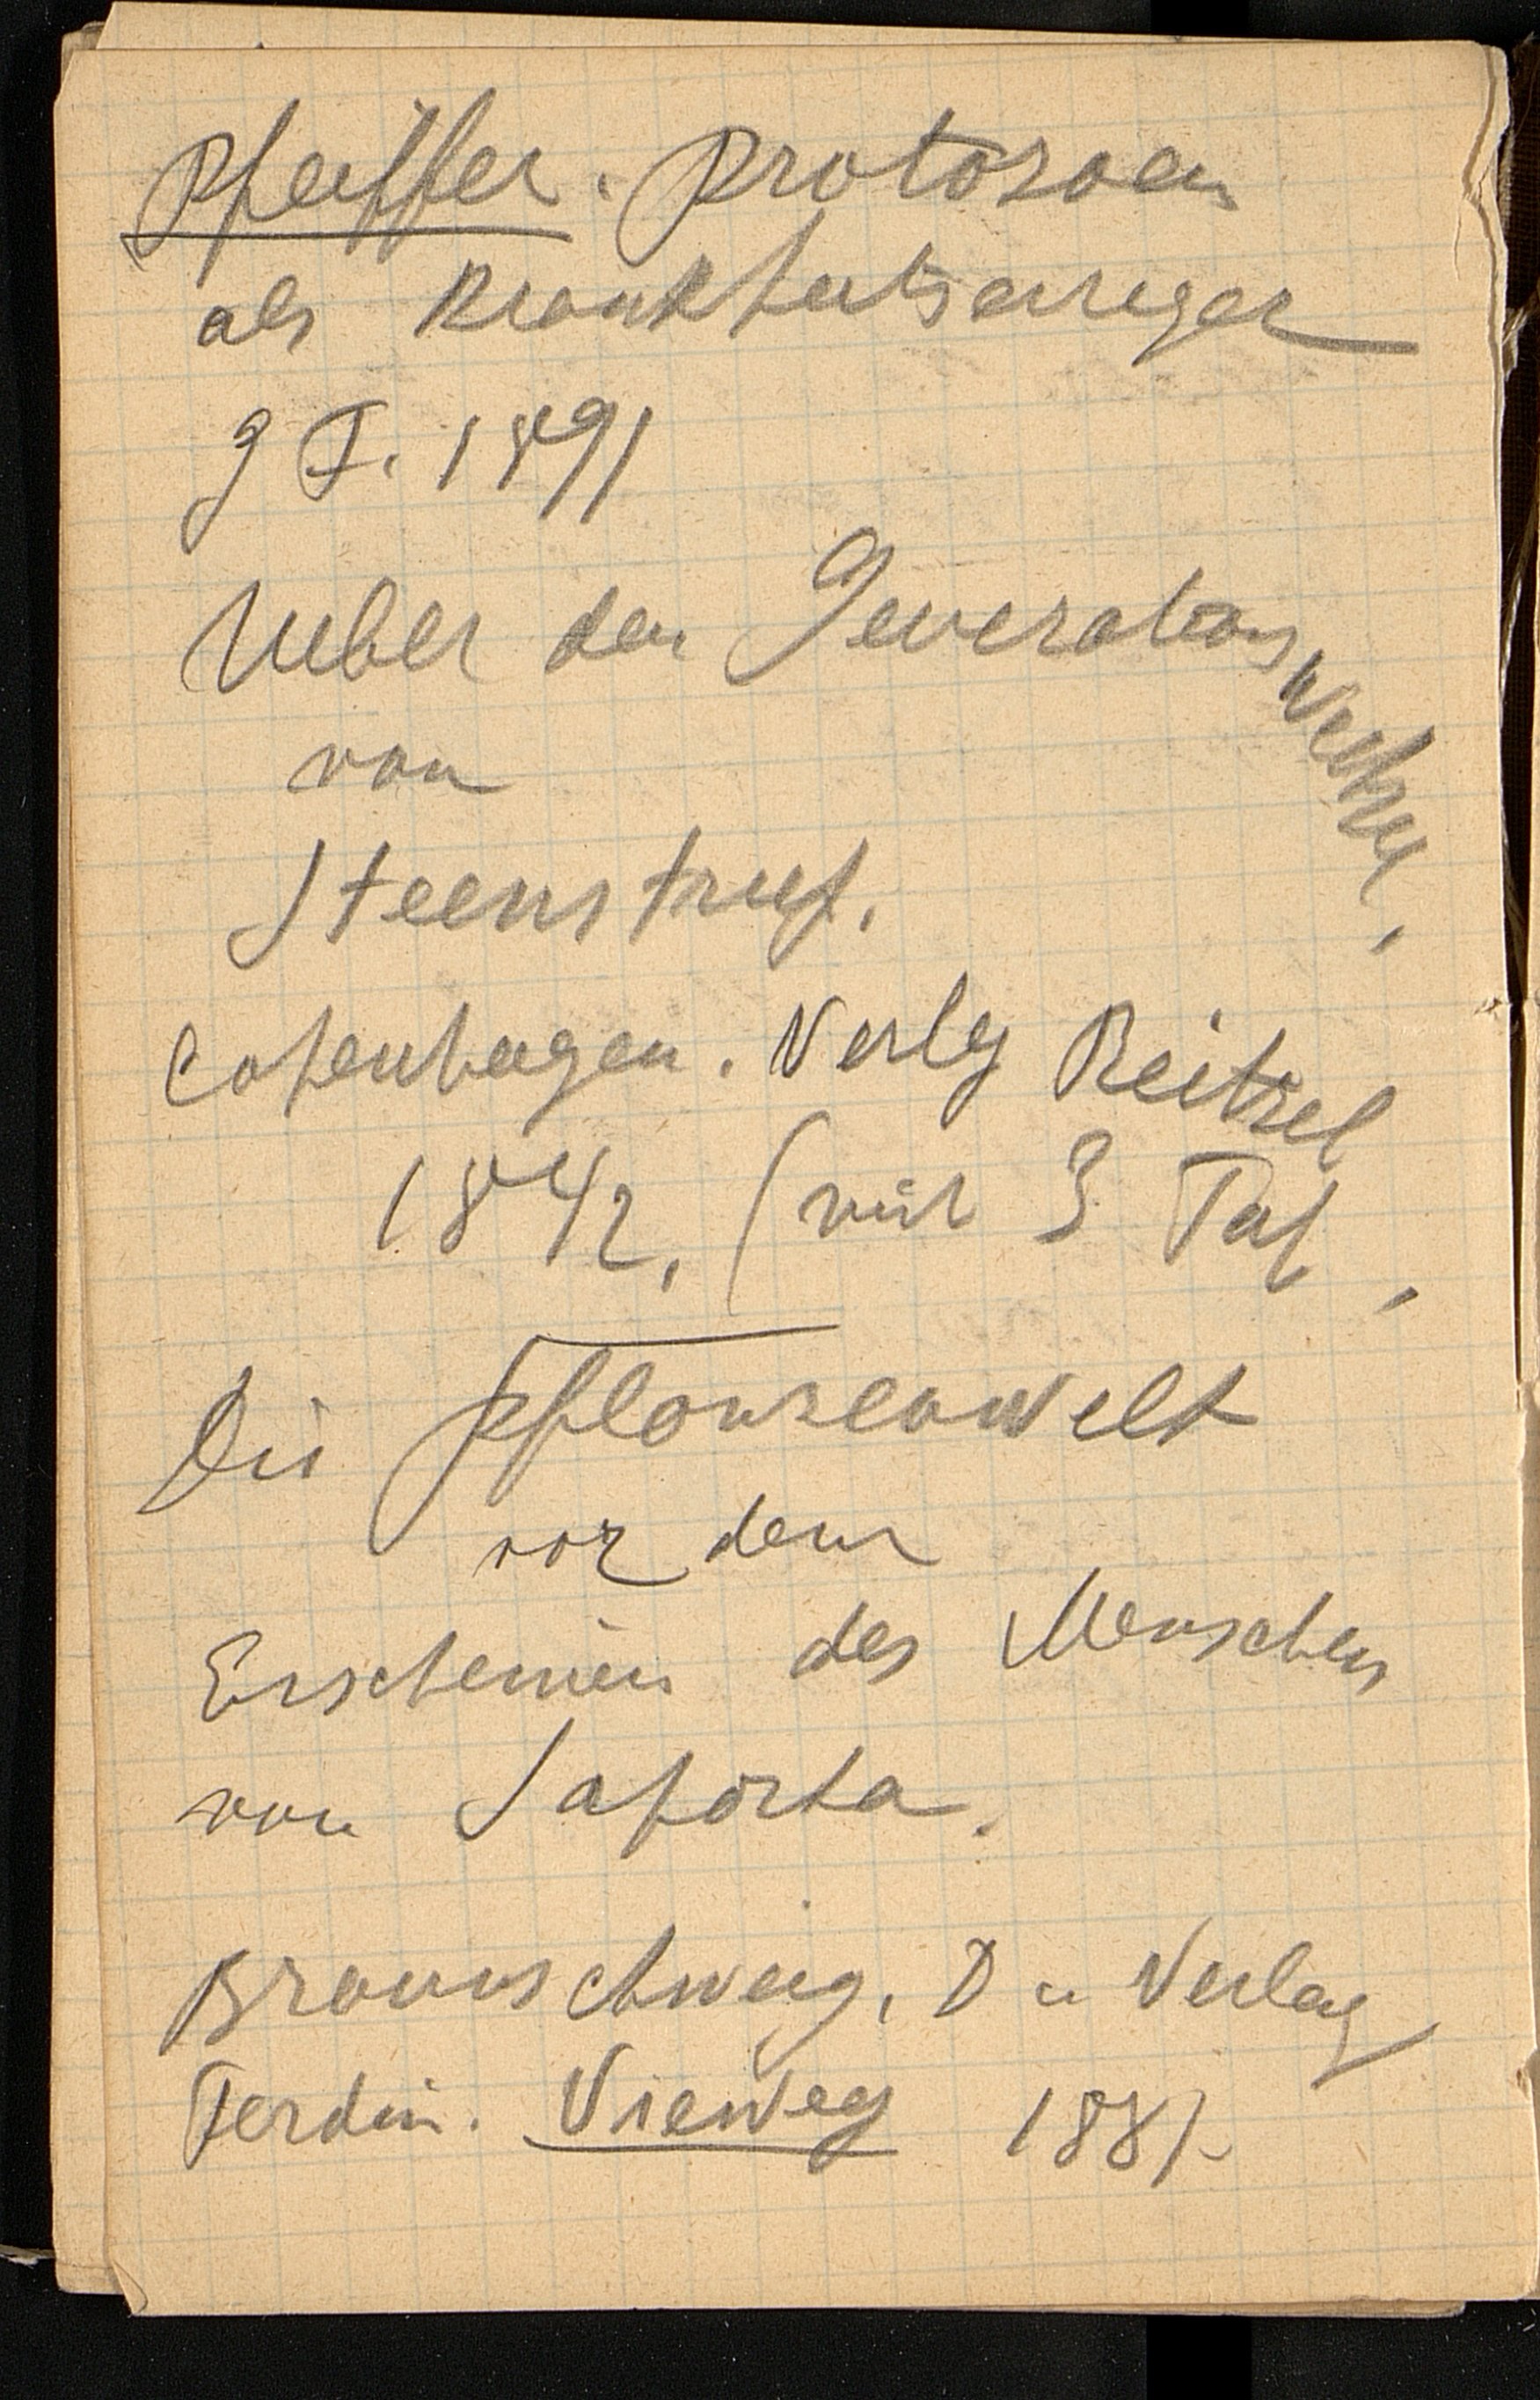 Pfeiffer. Protozoen
als Krankheitserreger
J F. 1891
Ueber den Generationswechsel.
von
Steenstrup.
Copenhagen. Verlg Reitzel
1842. (mit 3 Taf.
Die Pflanzenwelt
vor dem
Erscheinen des Menschen
von Saporta.
Braunschweig, D u Verlag
Ferdin. Vieweg 1881.